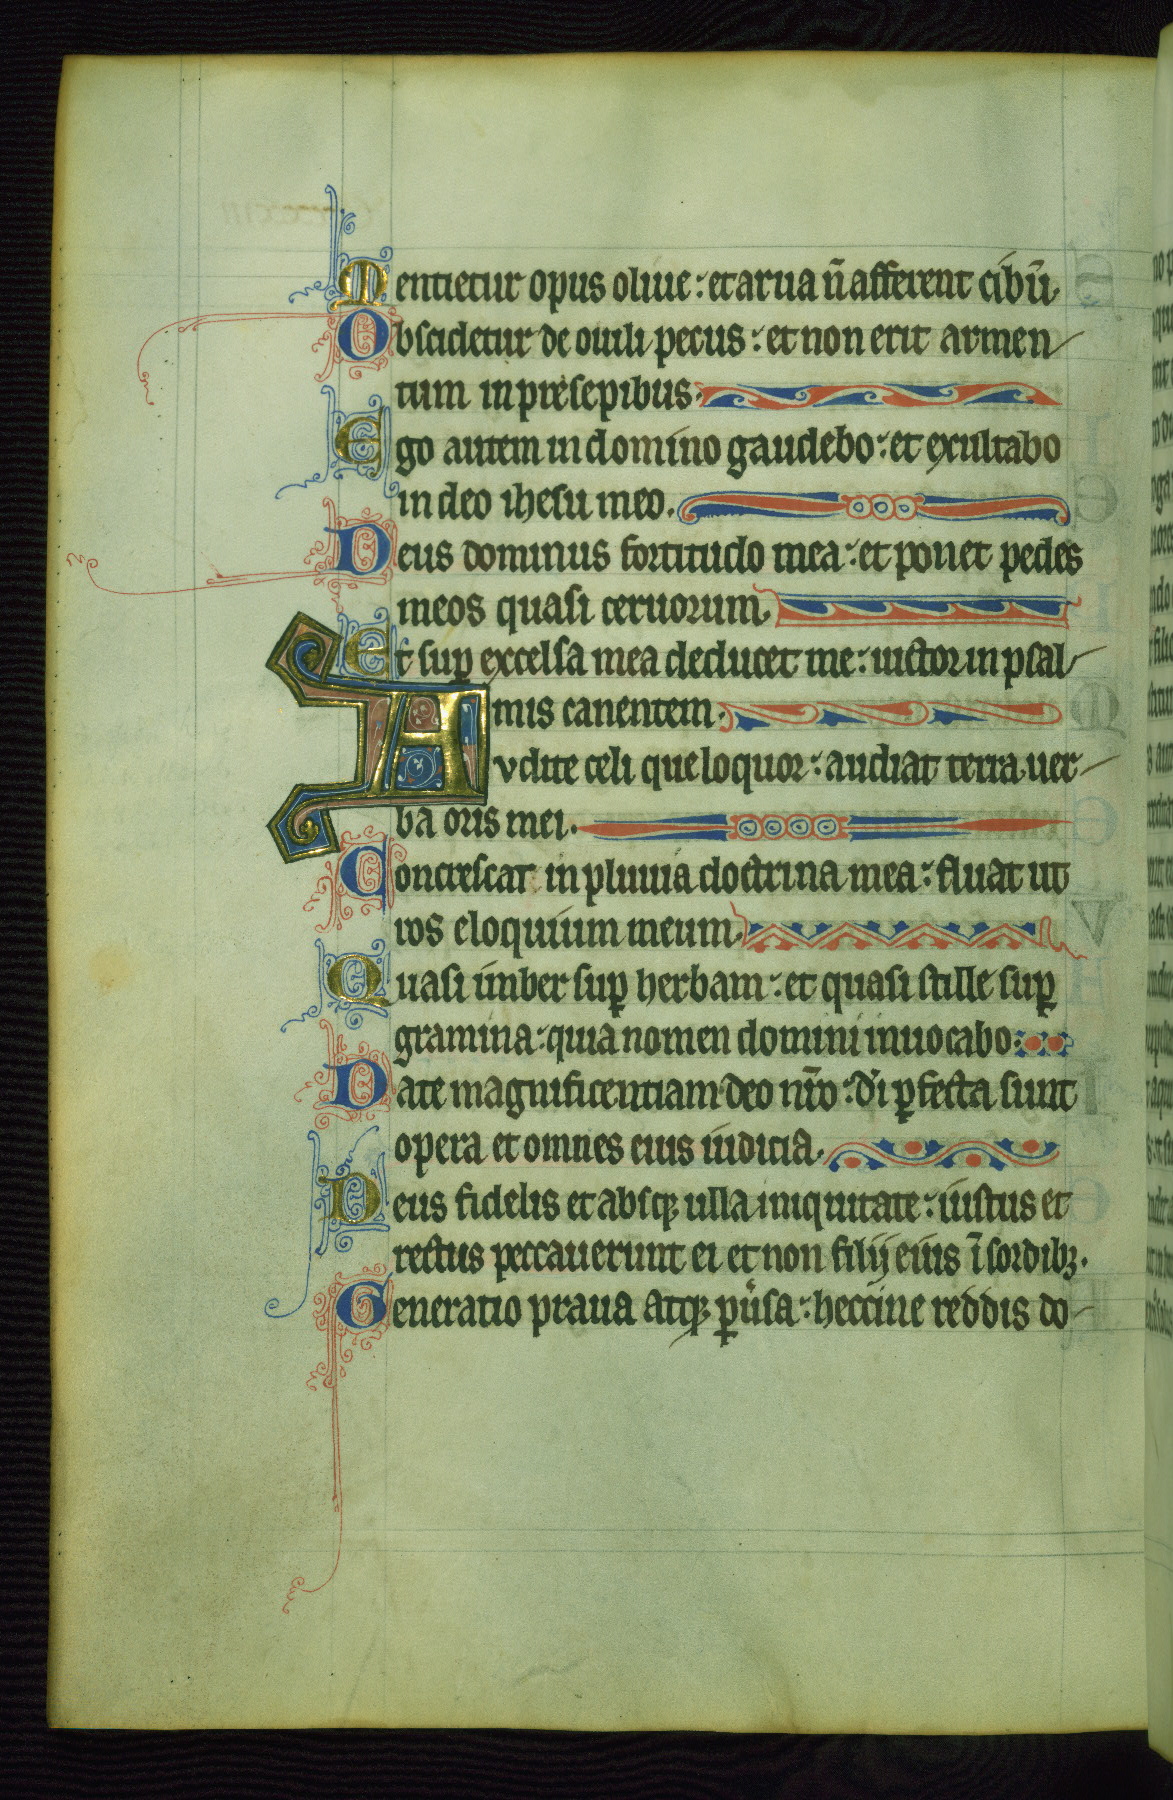 Mentietur opus oliue: et arua ñ afferent cibū.
Obscidetur de ouili pecus: et non erit armen
tum in presepibus.
Ego autem in domino gaudebo: et exultabo
in deo ihesu meo.
Deus dominus fortitudo mea: et ponet pedes
meos quasi ceruorum.
Et sup̱ excelsa mea deducet me: uictor in psal
mis canentem.
Avdite celi que loquor: audiat terra uer
ba oris mei.
Concrescat in pluuia doctrina mea: fluat ut
ros eloquium meum.
Quasi imber sup̱ herbam: et quasi stille sup̱
gramina: quia nomen domini inuocabo:
Date magnificentiam deo nr̄o: di ꝑfecta sunt
opera et omnes eius iudicia.
Deus fidelis et absqꝫ ulla iniquitate: iustus et
rectus peccauerunt ei et non filij eius ī sordibꝫ.
Generatio praua atqꝫ ꝑuͥsa: heccine reddis do